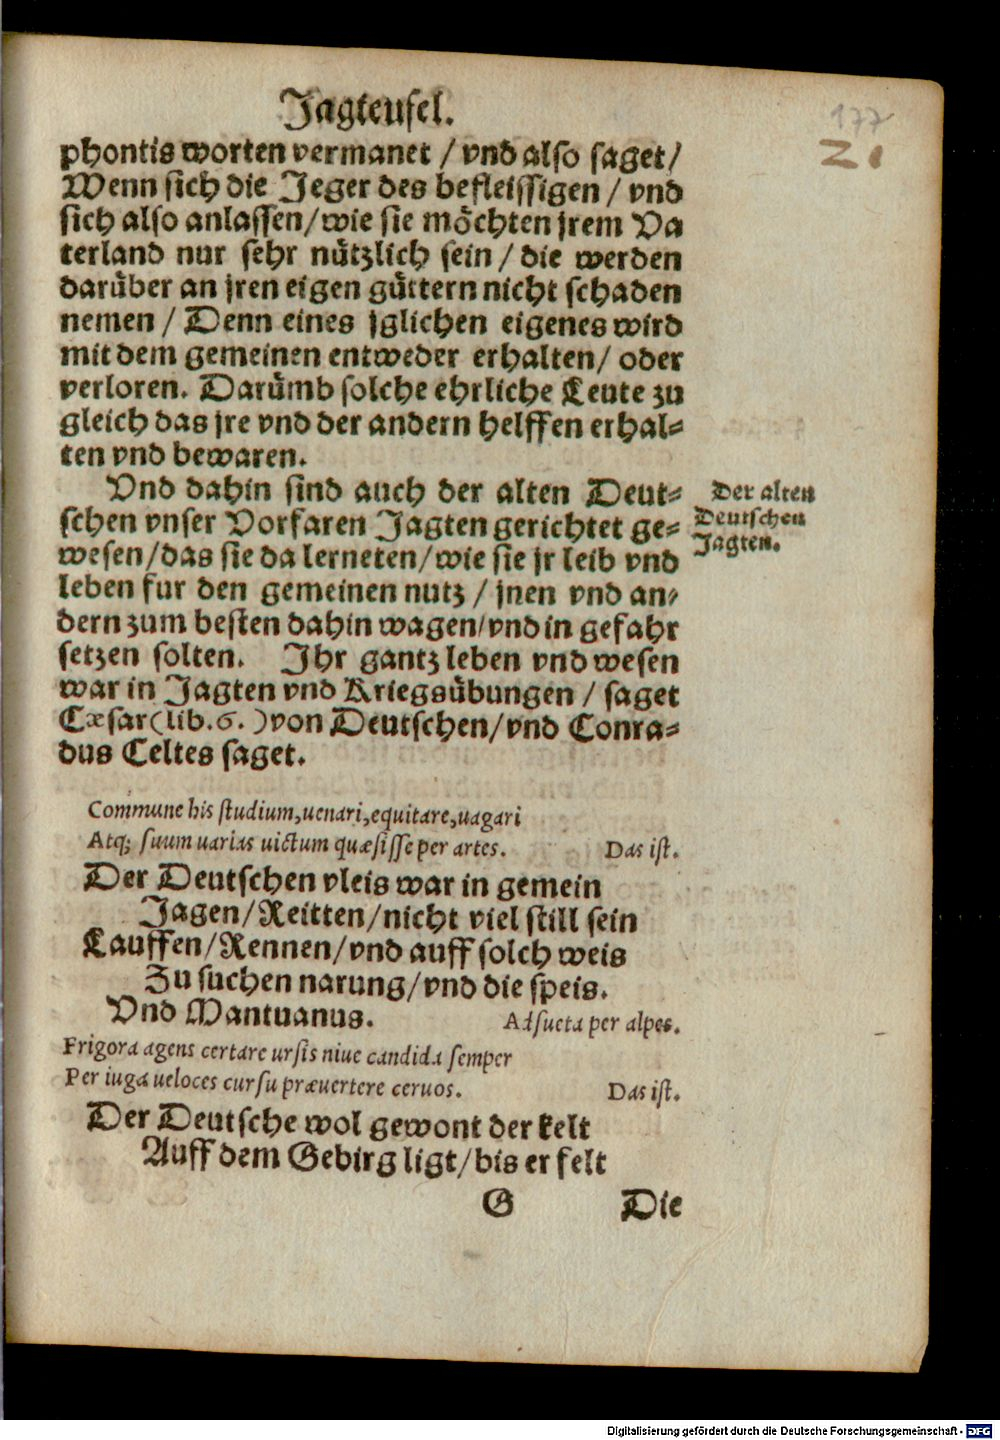 Jagteufel.
177
21
phontis worten vermanet / vnd also saget /
Wenn sich die Jeger des befleissigen / vnd
sich also anlassen / wie sie möchten jrem Va
terland nur sehr nützlich sein / die werden
darüber an jren eigen güttern nicht schaden
nemen / Denn eines jglichen eigenes wird
mit dem gemeinen entweder erhalten / oder
verloren. Darümb solche ehrliche Leute zu
gleich das jre vnd der andern helffen erhal-
ten vnd bewaren.
Vnd dahin sind auch der alten Deut-
schen vnser Vorfaren Jagten gerichtet ge-
wesen / das sie da lerneten / wie sie jr leib vnd
leben fur den gemeinen nutz / jnen vnd an-
dern zum besten dahin wagen / vnd in gefahr
setzen solten. Ihr gantz leben vnd wesen
war in Jagten vnd Kriegsübungen / saget
Cæsar (lib. 6.) von Deutschen / vnd Conra-
dus Celtes saget.
Der alten
Deutschen
Jagten.
Commune his studium, uenari, equitare, uagari
Atq; suum uarias uictum quæsisse per artes. Das ist.
Der Deutschen vleis war in gemein
Jagen / Reitten / nicht viel still sein
Lauffen / Rennen / vnd auff solch weis
Zu suchen narung / vnd die speis.
Vnd Mantuanus. Adsueta per alpes.
Frigora agens certare ursis niue candida semper
Per iuga ueloces cursu præuertere ceruos. Das ist.
Der Deutsche wol gewont der kelt
Auff dem Gebirg ligt / bis er felt
G Die
Digitalisierung gefördert durch die Deutsche Forschungsgemeinschaft - DFG